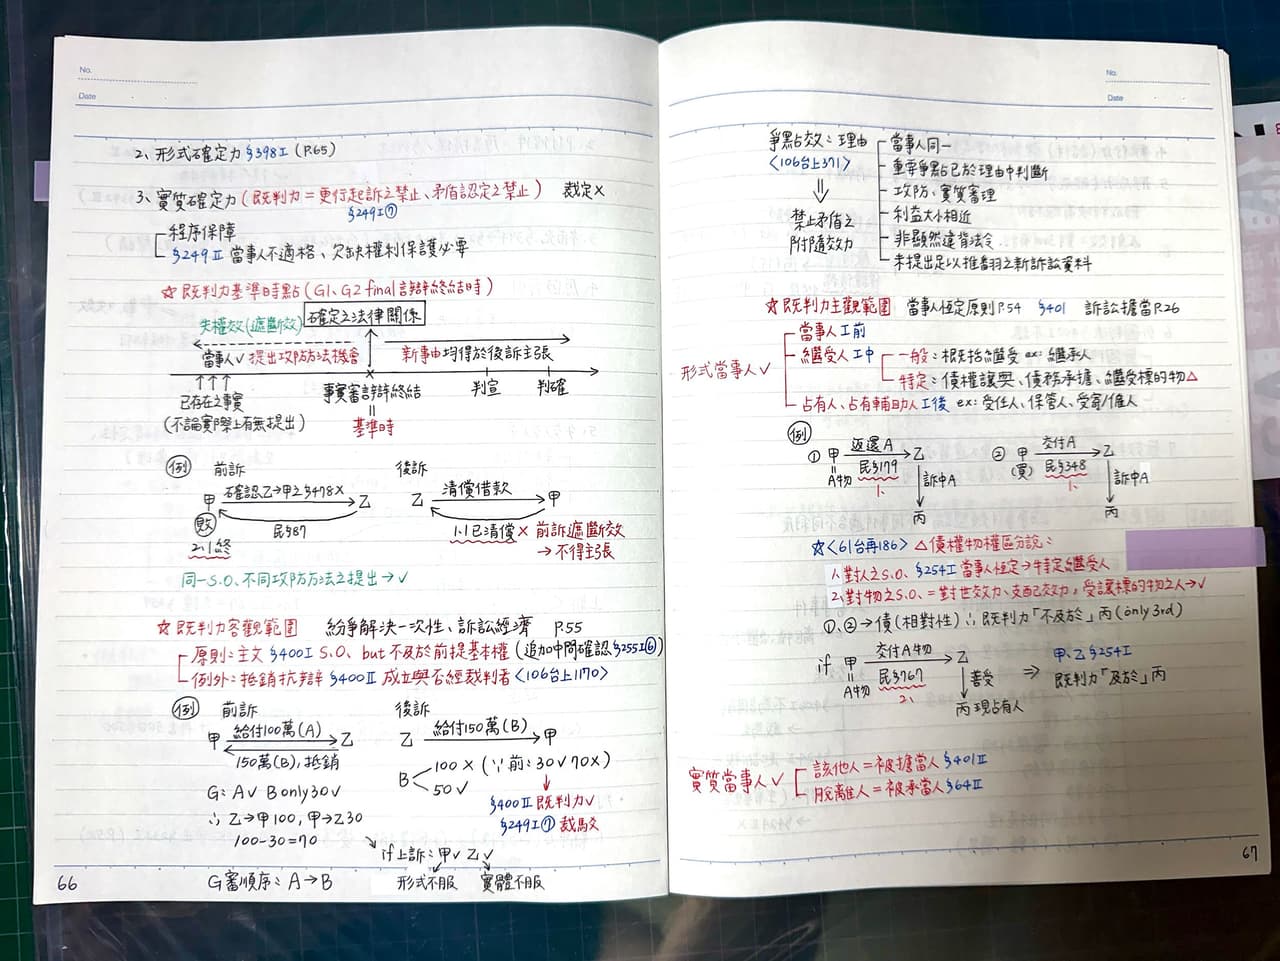 No.
Date
2、形式確定力 §398I (P.65)
3、實質確定力 (既判力 = 更行起訴之禁止、矛盾認定之禁止) 裁定×
§249I⑦
程序保障
§249II 當事人不適格、欠缺權利保護必要
☆既判力基準時點 (G1、G2 final言辯終結時)
失權效(遮斷效) 確定之法律關係
當事人✓提出攻防方法機會 新事由均得於後訴主張
已存在之事實 事實審言辯終結 判宣 判確
(不論實際上有無提出) = 基準時
例 前訴 後訴
甲 確認乙→甲之§478× 乙 乙 清償借款 甲
敗 民§87 1.1已清償× 前訴遮斷效
2.1終 → 不得主張
同一S.O、不同攻防方法之提出→✓
☆既判力客觀範圍 紛爭解決一次性、訴訟經濟 P.55
原則：主文 §400I S.O、but不及於前提基本權 (追加中間確認§255I⑥)
例外：抵銷抗辯 §400II 成立與否經裁判者〈106台上1170〉
例 前訴 後訴
甲 給付100萬(A) 乙 乙 給付150萬(B) 甲
150萬(B)、抵銷
B 100× (∵前：30✓70×)
50✓
G：A✓ B only 30✓
§400II 既判力✓
∴乙→甲100, 甲→乙30
§249I⑦ 裁駁
100-30=70
if上訴：甲✓ 乙✓
G審順序：A→B 形式不服 實體不服
66
No.
Date
爭點效：理由
〈106台上371〉
⇓
禁止矛盾之
附隨效力
當事人同一
重要爭點已於理由中判斷
攻防、實質審理
利益大小相近
非顯然違背法令
未提出足以推翻之新訴訟資料
☆既判力主觀範圍 當事人恆定原則P.54 §401 訴訟擔當P.26
形式當事人✓
當事人I前
繼受人I中
一般：概括繼受 ex：繼承人
特定：債權讓與、債務承擔、繼受標的物△
占有人、占有輔助人I後 ex：受任人、保管人、受寄/僱人
例
① 甲 返還A 乙 ② 甲 交付A 乙
A物 民§179 訴中A (買) 民§348 訴中A
1、 1、
丙 丙
☆〈61台再186〉△債權物權區分說：
1、對人之S.O、§254I 當事人恆定→特定繼受人
2、對物之S.O、=對世效力、支配效力，受讓標的物之人→✓
①、②→債(相對性) ∴既判力「不及於」丙(only 3rd)
if 甲 交付A物 乙 甲、乙§254I
A物 民§767 善受 ⇒ 既判力「及於」丙
2、
丙現占有人
實質當事人✓
該他人=被擔當人§401II
脫離人=被承當人§64II
67